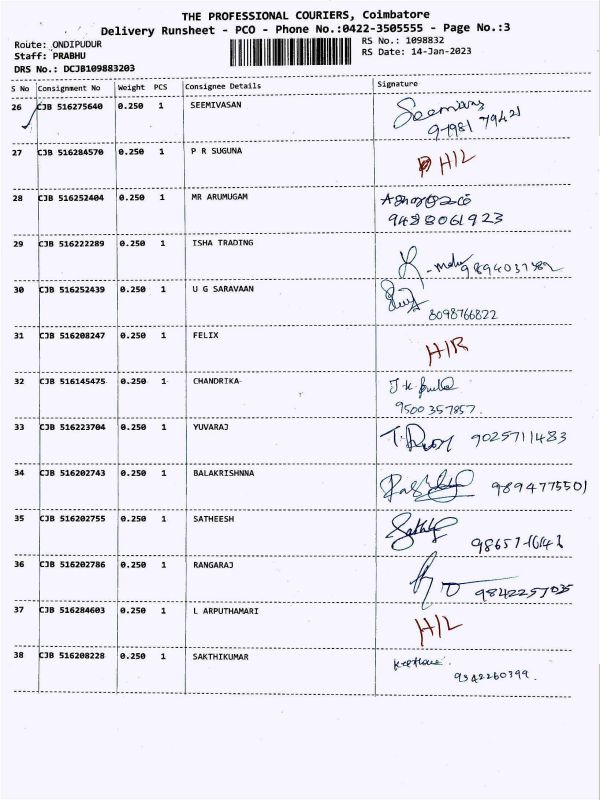 THE PROFESSIONAL COURIERS, Coimbatore
Delivery Runsheet - PCO - Phone No.:0422-3505555 - Page No.:3
Route: ONDIPUDUR
RS No.: 1098832
Staff: PRABHU
RS Date: 14-Jan-2023
DRS No.: DCJB109883203
S No Consignment No Weight PCS Consignee Details Signature
26 CJB 516275640 0.250 1 SEEMIVASAN
27 CJB 516284570 0.250 1 P R SUGUNA H/L
28 CJB 516252404 0.250 1 MR ARUMUGAM
9488061923
29 CJB 516222289 0.250 1 ISHA TRADING
30 CJB 516252439 0.250 1 U G SARAVAAN
8098766822
31 CJB 516208247 0.250 1 FELIX H/R
32 CJB 516145475 0.250 1 CHANDRIKA
9500357857.
33 CJB 516223704 0.250 1 YUVARAJ 9025711483
34 CJB 516202743 0.250 1 BALAKRISHNNA 9894775501
35 CJB 516202755 0.250 1 SATHEESH
36 CJB 516202786 0.250 1 RANGARAJ
37 CJB 516284603 0.250 1 L ARPUTHAMARI H/L
38 CJB 516208228 0.250 1 SAKTHIKUMAR
9342260399.